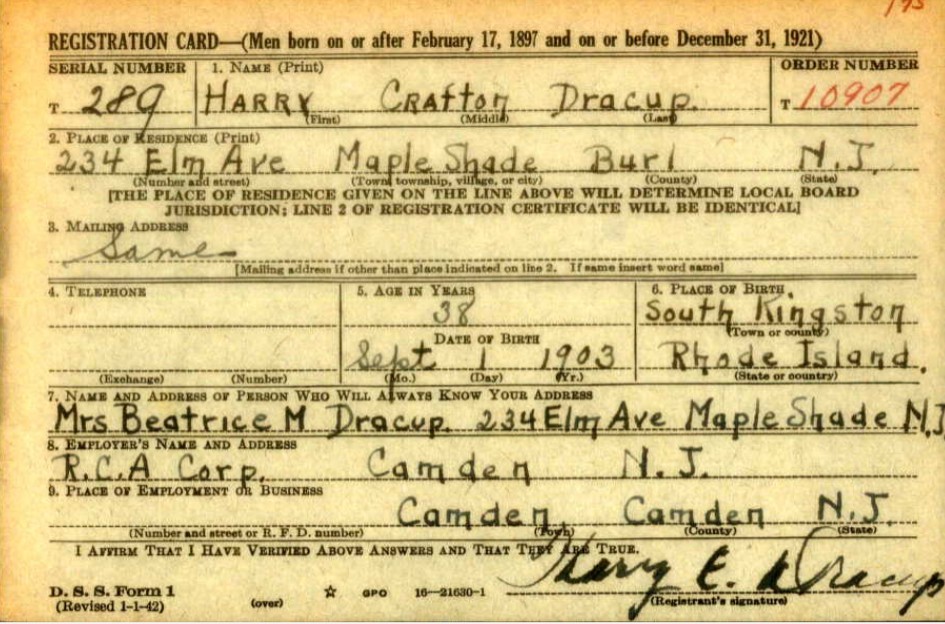 175
REGISTRATION CARD—(Men born on or after February 17, 1897 and on or before December 31, 1921)
SERIAL NUMBER 1. NAME (Print) ORDER NUMBER
T 289 HARRY Crafton Dracup. T 10907
(First) (Middle) (Last)
2. PLACE OF RESIDENCE (Print)
234 Elm Ave Maple Shade Burl N.J.
(Number and street) (Town, township, village, or city) (County) (State)
[THE PLACE OF RESIDENCE GIVEN ON THE LINE ABOVE WILL DETERMINE LOCAL BOARD
JURISDICTION; LINE 2 OF REGISTRATION CERTIFICATE WILL BE IDENTICAL]
3. MAILING ADDRESS
Same
[Mailing address if other than place indicated on line 2. If same insert word same]
4. TELEPHONE 5. AGE IN YEARS 6. PLACE OF BIRTH
38 South Kingston
DATE OF BIRTH (Town or county)
Sept 1 1903 Rhode Island.
(Exchange) (Number) (Mo.) (Day) (Yr.) (State or country)
7. NAME AND ADDRESS OF PERSON WHO WILL ALWAYS KNOW YOUR ADDRESS
Mrs Beatrice M Dracup. 234 Elm Ave Maple Shade N.J
8. EMPLOYER'S NAME AND ADDRESS
R.C.A Corp. Camden N.J.
9. PLACE OF EMPLOYMENT OR BUSINESS
Camden Camden N.J.
(Number and street or R. F. D. number) (Town) (County) (State)
I AFFIRM THAT I HAVE VERIFIED ABOVE ANSWERS AND THAT THEY ARE TRUE.
Harry C. Dracup
D. S. S. Form 1
(Revised 1-1-42) (over) ☆ GPO 16—21630-1 (Registrant's signature)